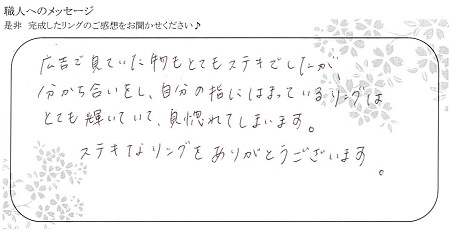 職人へのメッセージ
是非 完成したリングのご感想をお聞かせください♪
広告で見ていた物もとてもステキでしたが、
分かち合いをし、自分の指にはまっているリングは
とても輝いていて、見惚れてしまいます。
ステキなリングをありがとうございます。